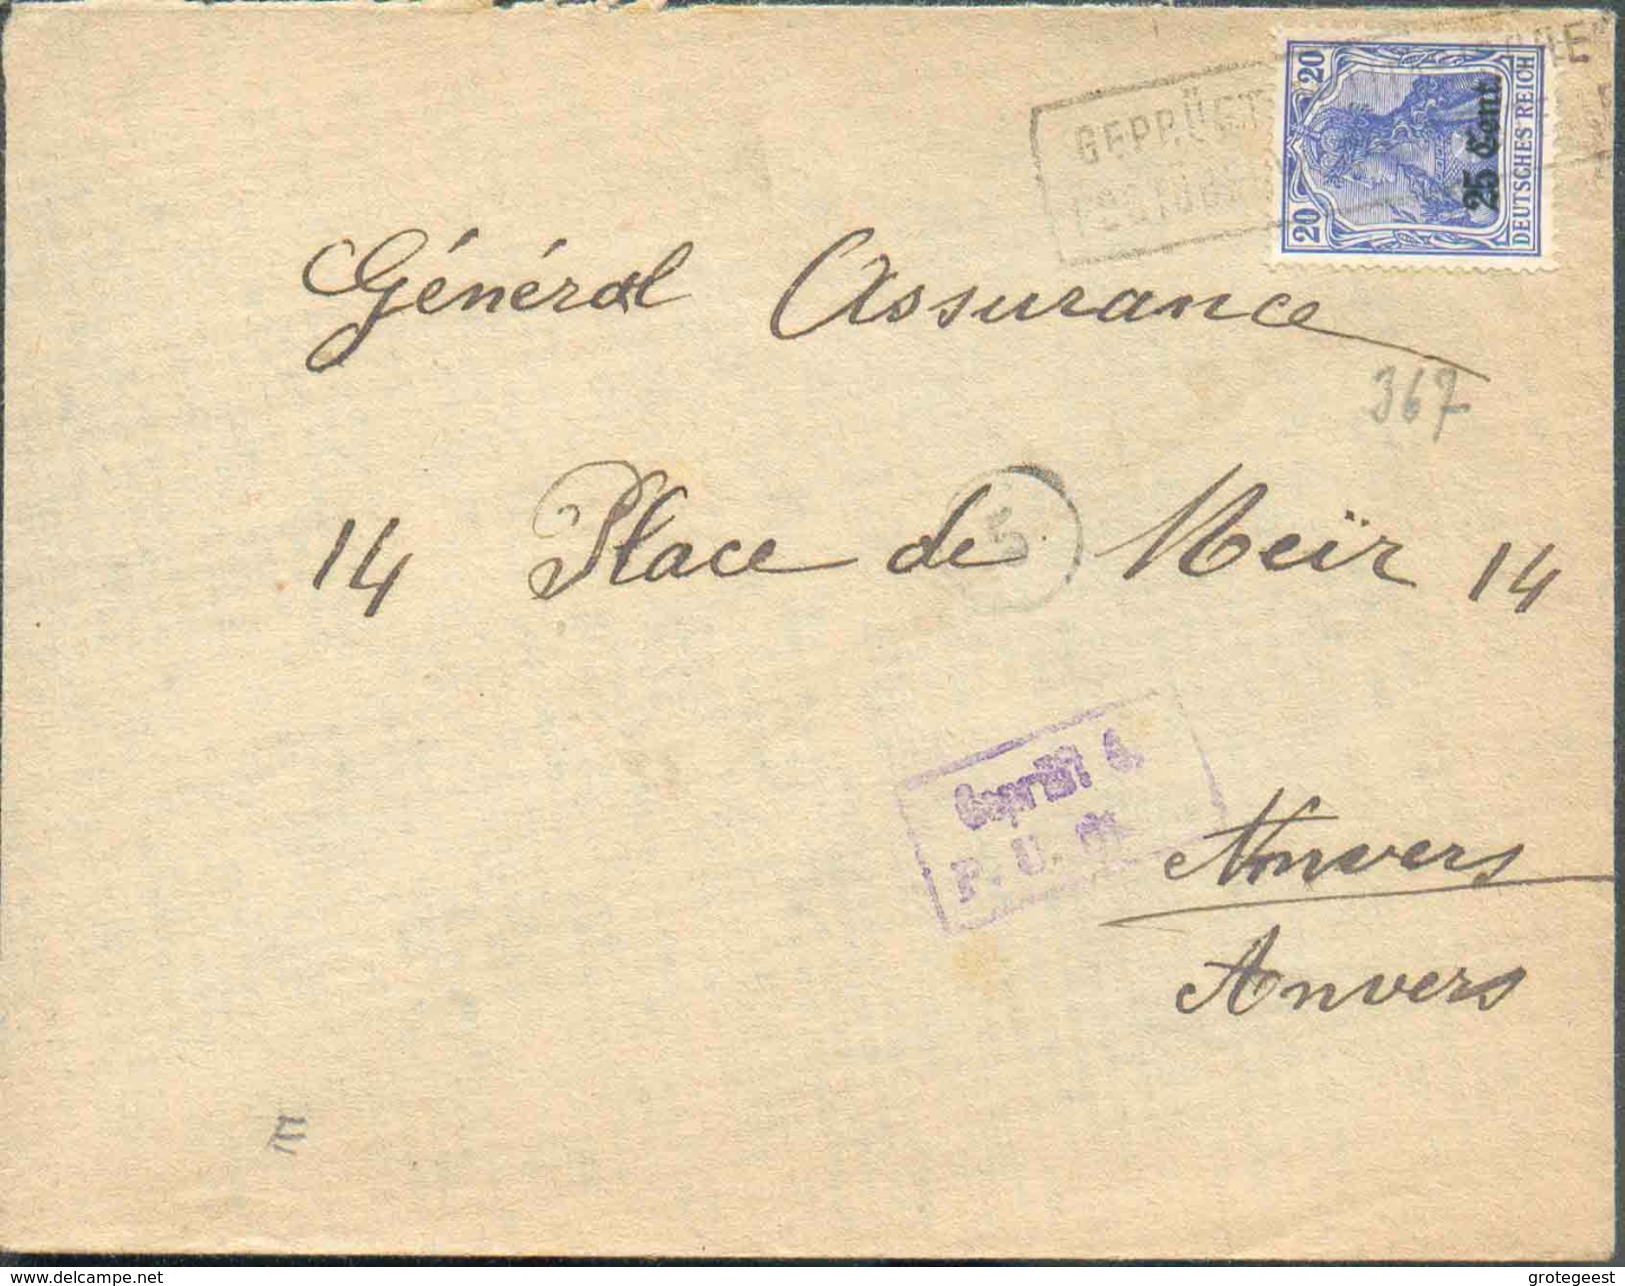 GEPRÜFT
20 20
25 Cent.
DEUTSCHES REICH
Général Assurance
367
14 Place de Meïr 14
5
Geprüft d.
P. Ü. St.
Anvers
Anvers
E
www.delcampe.net
grotegeest